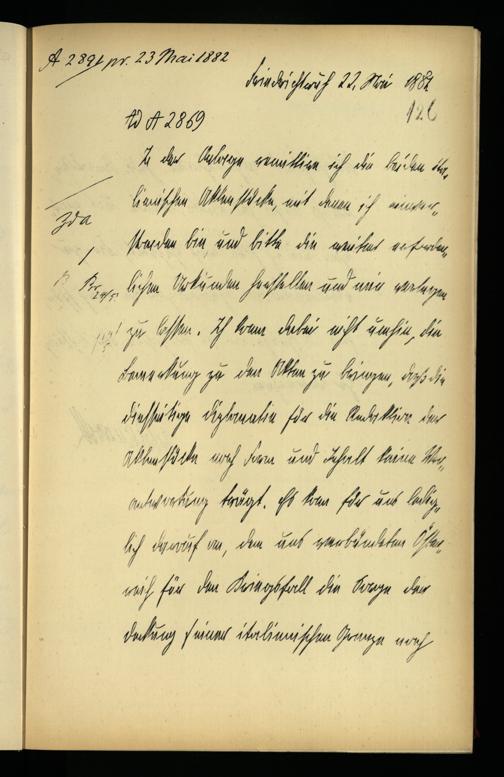 A 2891 pr. 23 Mai 1882
Friedrichsruh 22. Mai 1882
126
Ad A 2869
In der Anlage remittire ich die beiden ita-
lienischen Aktenstücke, mit denen ich einver-
zda
standen bin, und bitte die weiter erforder-
lichen Urkunden herstellen und mir vorlegen
zu lassen. Ich kann dabei nicht umhin, die
Bemerkung zu den Akten zu bringen, daß die
diesseitige Diplomatie für die Redaktion der
Aktenstücke nach Form und Inhalt keine Ver-
antwortung trägt. Es kam für uns ledig-
lich darauf an, dem uns verbündeten Öster-
reich für den Kriegsfall die Sorge der
Deckung seiner italienischen Grenze nach